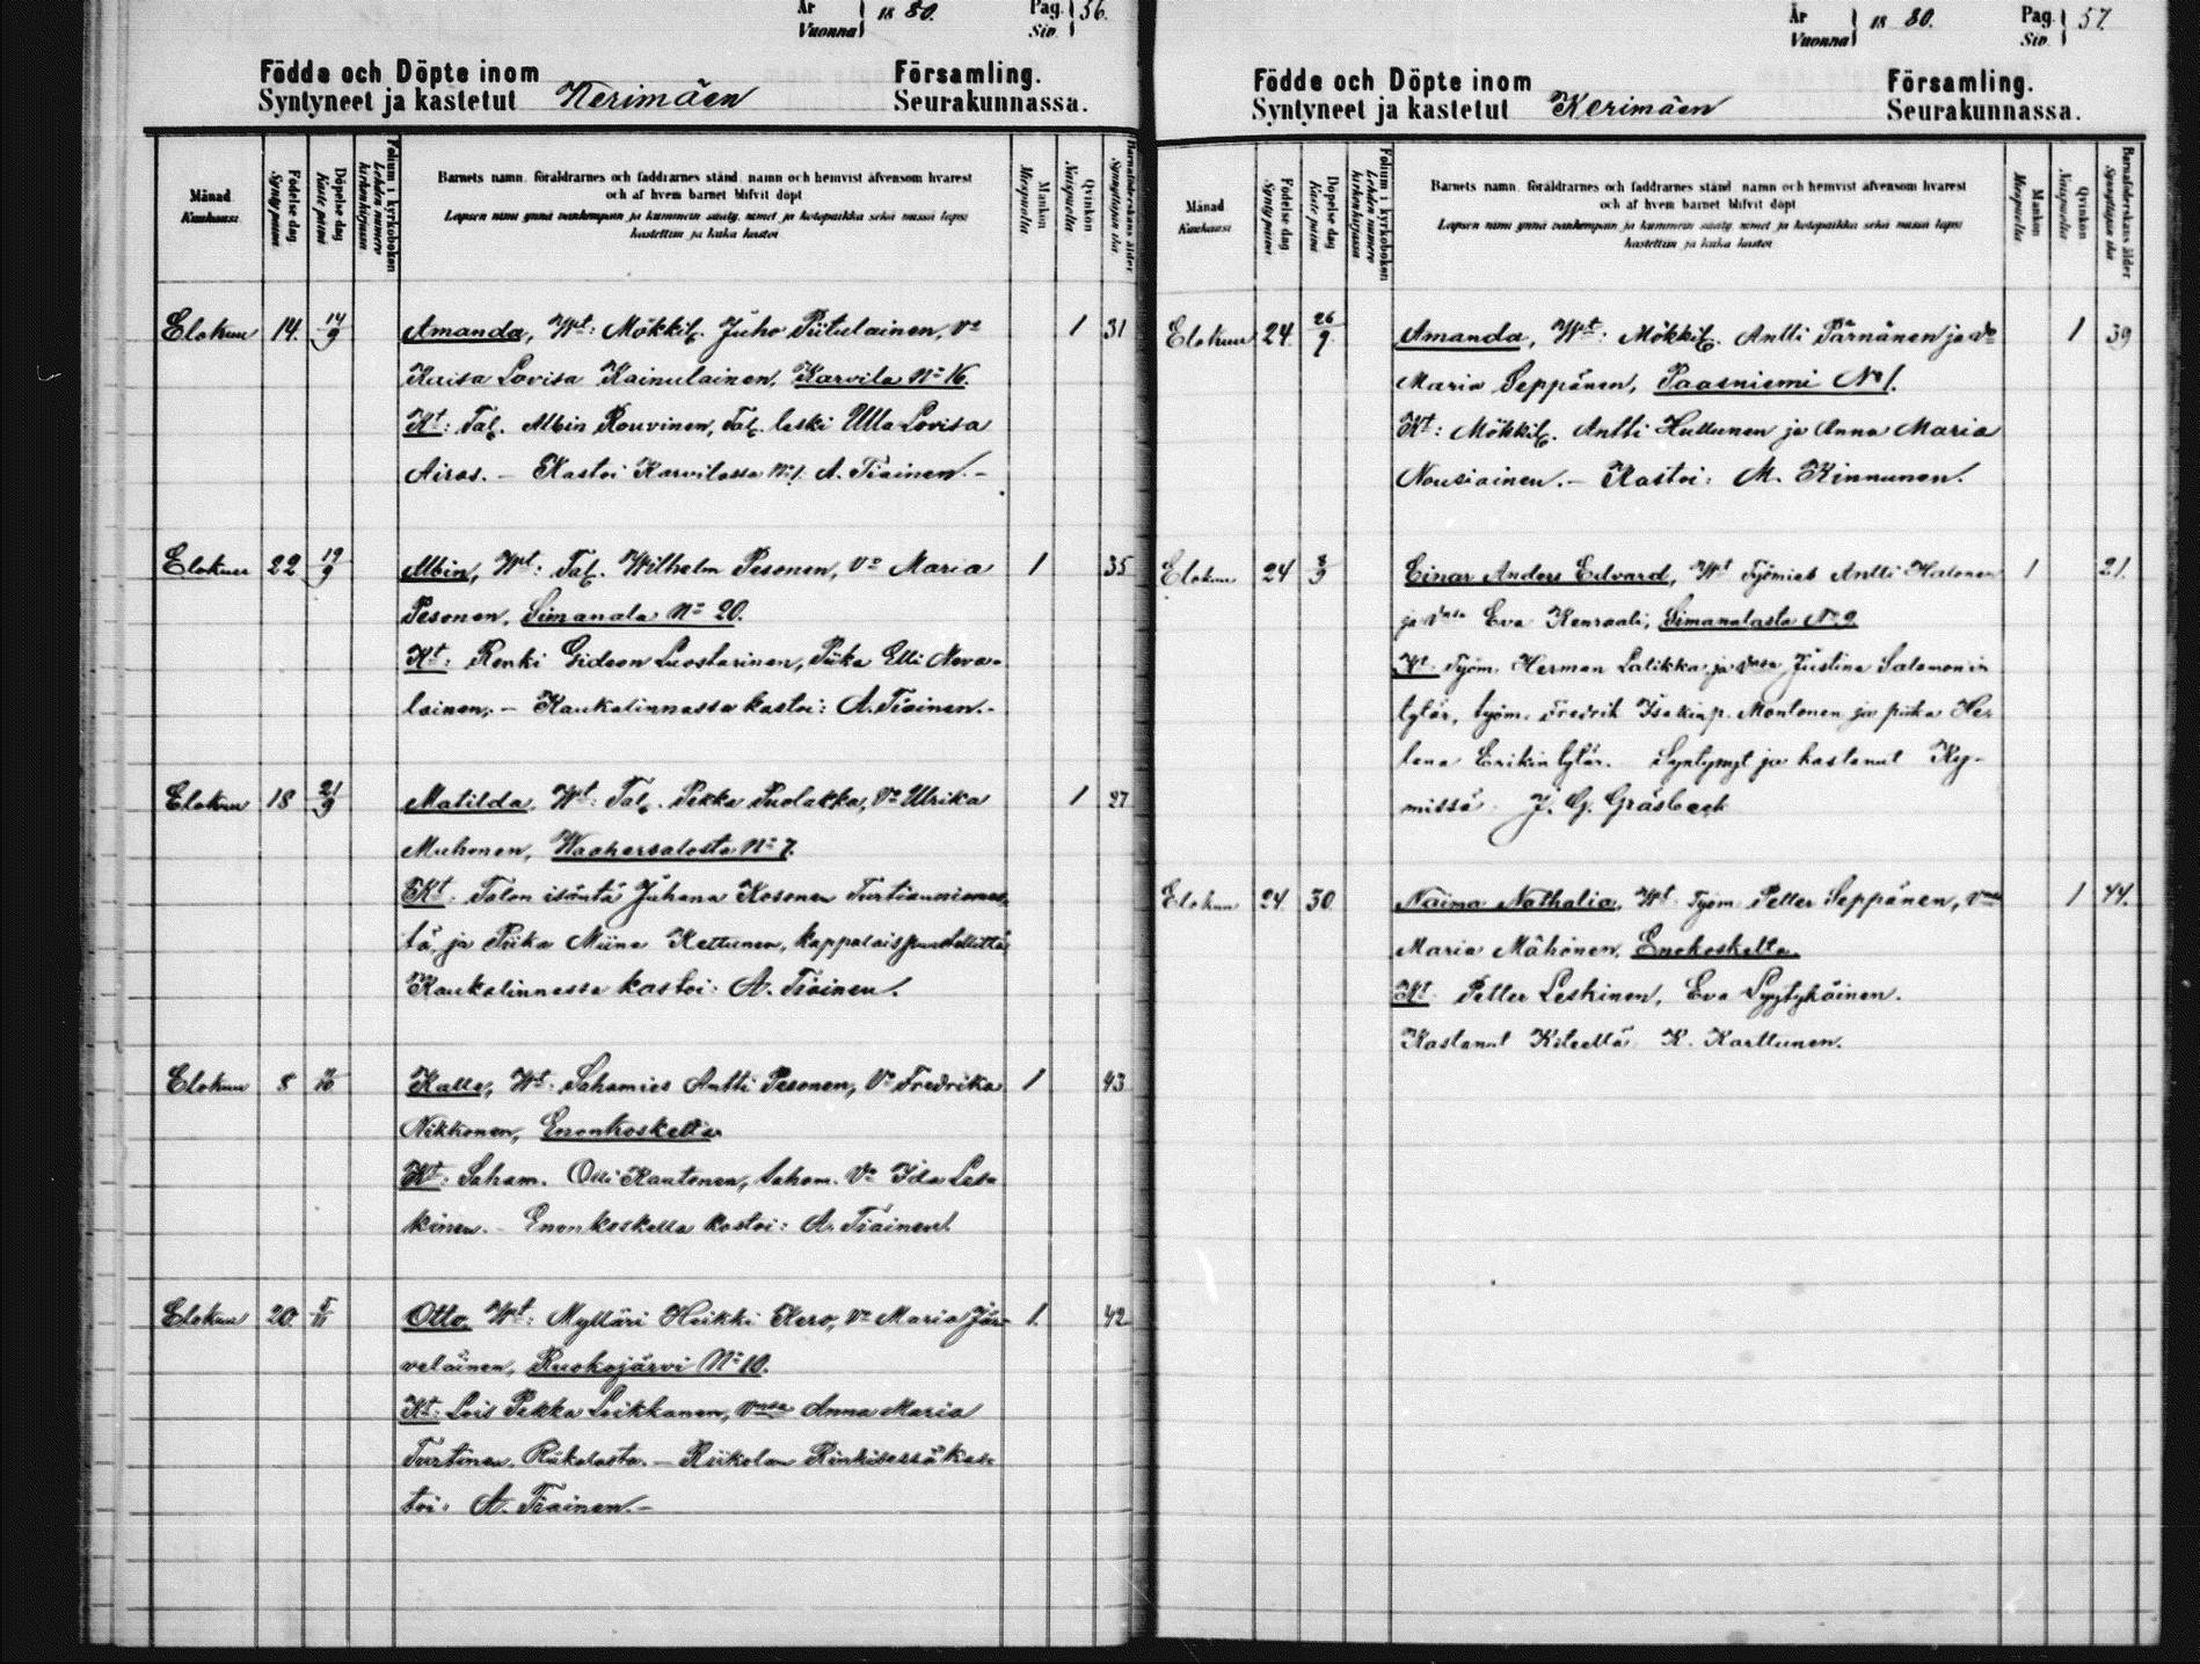 År Vuonna 1880. Pag. Siv. 56.
Födde och Döpte inom Församling.
Syntyneet ja kastetut Kerimäen Seurakunnassa.
Månad Kuukausi
Födelse dag Synty päivä
Döpelse dag Kaste päivä
Folium i kyrkoboken Lehden numero kirkonkirjassa
Barnets namn, föräldrarnes och faddrarnes stånd, namn och hemvist äfvensom hvarest
och af hvem barnet blifvit döpt
Lapsen nimi ynnä vanhempain ja kummein sääty, nimet ja kotopaikka sekä missä lapsi
kastettiin ja kuka kastoi
Mankön Miespuolia
Qvinkön Naispuolia
Barnaföderskans ålder Synnyttäjän ikä
Elokuu 14. 14/9 Amanda, Wt: Mökkil. Juho Piitulainen, Vo 1 31
Kaisa Lovisa Kainulainen, Karvila No 16.
Kt: Tal. Albin Rouvinen, Tal. leski Ulla Lovisa
Airas. – Kastoi Karvilassa No 1. A. Tiainen. –
Elokuu 22 19/9 Albin, Wt: Tal. Wilhelm Pesonen, Vo Maria 1 35
Pesonen, Simanala No 20.
Kt: Renki Gideon Luostarinen, Piika Elli Neva-
lainen, – Kaukalinnassa kastoi: A. Tiainen. –
Elokuu 18 21/9 Matilda, Wt: Tal. Pekka Puolakka, Vo Ulrika 1 27
Muhonen, Waahersalosta No 7.
Kt. Talon isäntä Juhana Kosonen Turtianniemes-
tä, ja Piika Miina Kettunen,
Kaukalinnassa kastoi: A. Tiainen.
Elokuu 8 Kalle, Wt: Sahamies Antti Pesonen, Vo Fredrika 1 43
Nikkonen, Enonkoskelta
Kt: Saham. Olli Rautonen, saham. Vo Ida Les-
kinen. – Enonkoskella kastoi: A. Tiainen.
Elokuu 20. Otto, Wt: Mylläri Heikki Kero, Vo Maria Jär- 1. 42
veläinen, Ruokojärvi No 10.
Kt: Lois Pekka Loikkanen, vmsa Anna Maria
Turtinen. Riikolasta. – Riikolan Rinkisessä kas-
toi: A. Tiainen. –
År Vuonna 1880. Pag. Siv. 57.
Födde och Döpte inom Församling.
Syntyneet ja kastetut Kerimäen Seurakunnassa.
Månad Kuukausi
Födelse dag Synty päivä
Döpelse dag Kaste päivä
Folium i kyrkoboken Lehden numero kirkonkirjassa
Barnets namn, föräldrarnes och faddrarnes stånd, namn och hemvist äfvensom hvarest
och af hvem barnet blifvit döpt
Lapsen nimi ynnä vanhempain ja kummein sääty, nimet ja kotopaikka sekä missä lapsi
kastettiin ja kuka kastoi
Mankön Miespuolia
Qvinkön Naispuolia
Barnaföderskans ålder Synnyttäjän ikä
Elokuu 24. 26/9. Amanda, Wt: Mökkil. Antti Pärnänen ja vo 1 39
Maria Seppänen, Paasniemi No 1.
Kt: Mökkil. Antti Huttunen ja Anna Maria
Nousiainen. – Kastoi: M. Kinnunen.
Elokuu 24 Einar Anders Edvard, Wt Työmies Antti Halonen 1 21.
ja Eva Kenraali, Simanalasta No 9.
Kt. Työm. Herman Lalikka ja vmsa Justina Salomonin
tytär, työm. Fredrik Isakinp. Montonen ja piika He-
lena Erikin tytär. Syntynyt ja kastanut Ky-
missä. J. G. Gräsbeck
Elokuu 24. 30. Naima Nathalia, Wt. Työm. Petter Seppänen, 1 44.
Maria Mähönen, Enokoskelta.
Kt. Petter Leskinen, Eva Lyytykäinen.
Kastanut K. Karttunen.